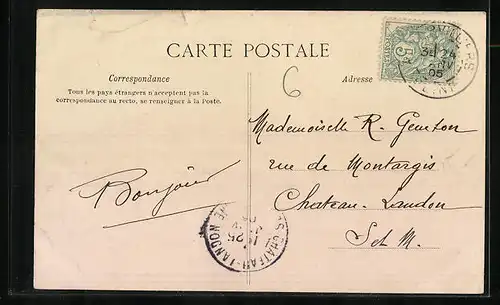 CARTE POSTALE
Correspondance
Tous les pays étrangers n'acceptent pas la
correspondance au recto, se renseigner à la Poste.
Adresse
6
Mademoiselle R.
rue de Montargis
Chateau-Landon
Set M.
Bonjour
5c
05
CHATEAU-LANDON
25